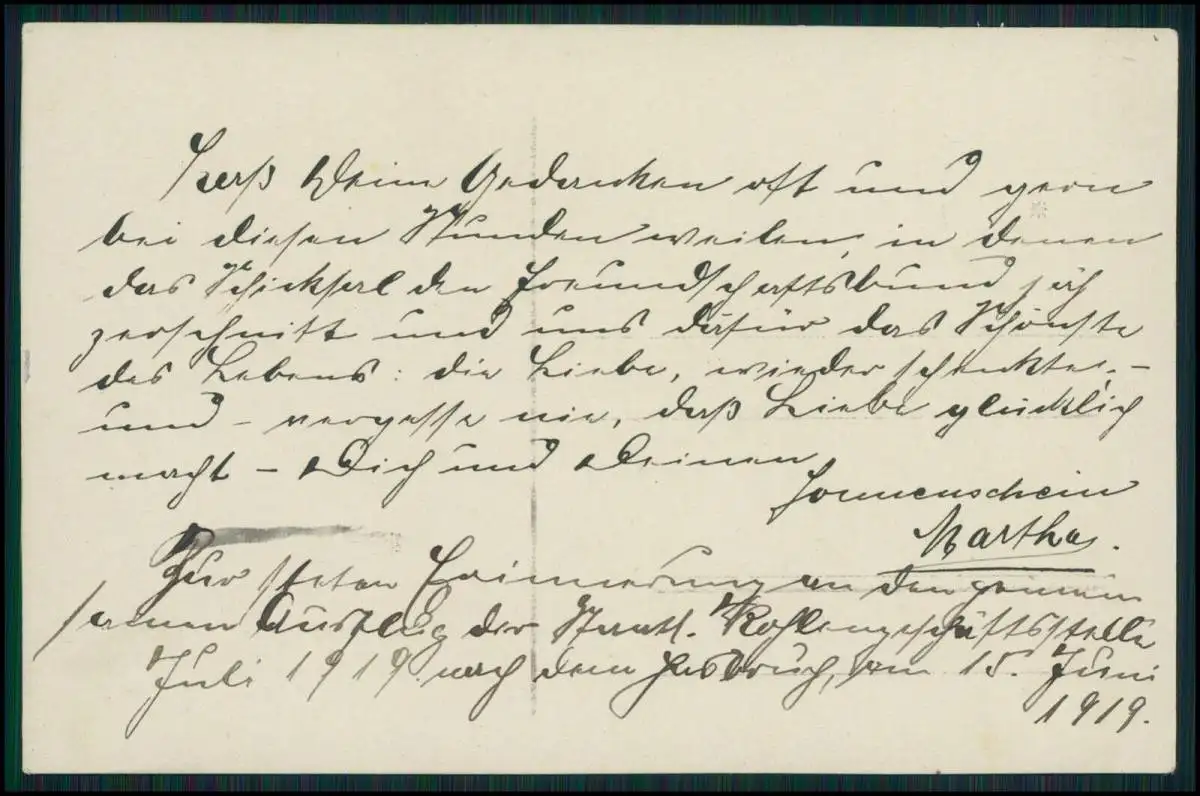 Laß Deine Gedanken oft und gern
bei diesen Stunden weilen, in denen
das Schicksal den Freundschaftsbund jäh
zerschnitt und uns dafür das Schönste
des Lebens: die Liebe, wieder schenkte, –
und – vergesse nie, daß Liebe glücklich
macht – Dich und Deinen
Sonnenschein
Martha.
Zur steten Erinnerung an den gemein
samen Ausflug der Staatl. Kohlengeschäftsstelle
Juli 1919 nach dem Hasbruch, am 15. Juni
1919.